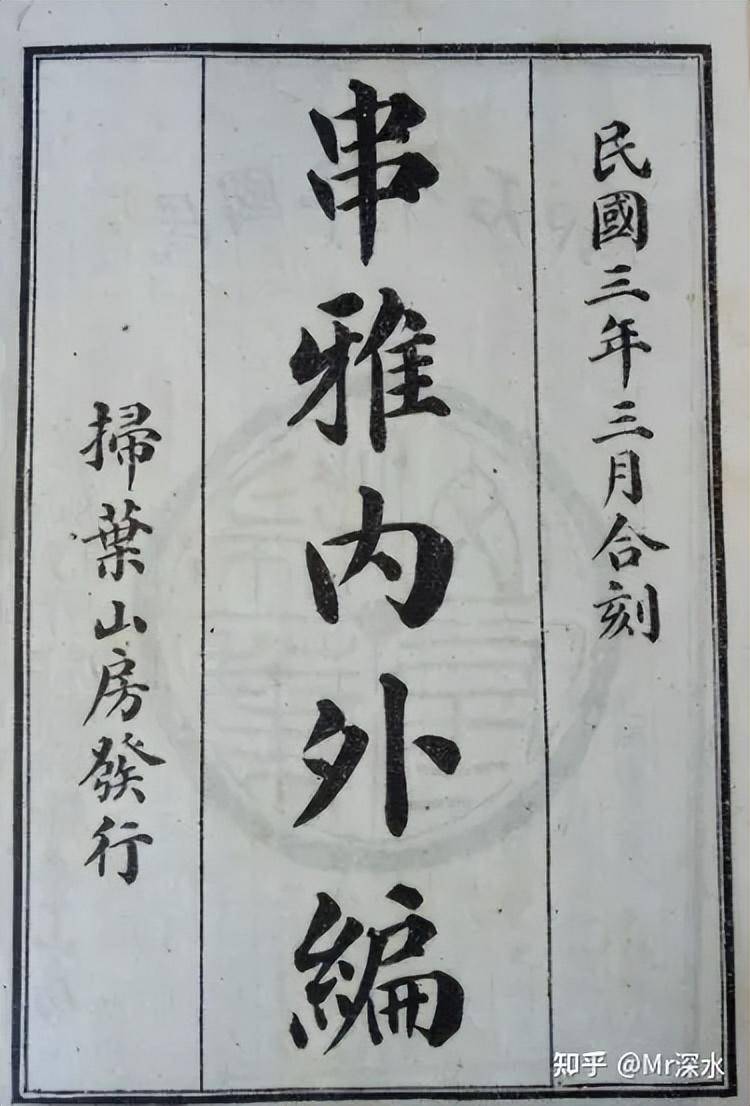 民國三年三月合刻
串雅内外編
掃葉山房發行
知乎 @Mr深水